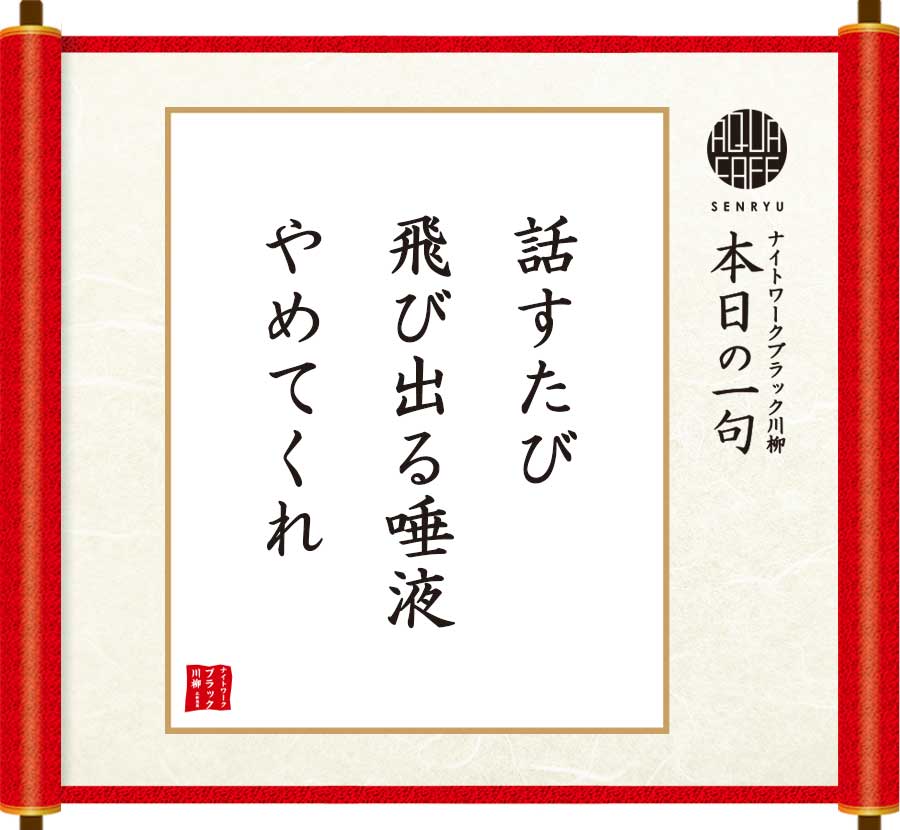 AQUA
CAFE
SENRYU
ナイトワークブラック川柳
本日の一句
話すたび
飛び出る唾液
やめてくれ
ナイトワーク
ブラック
川柳